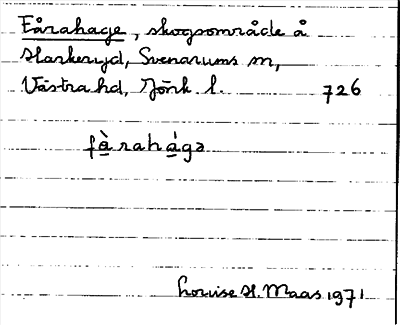 Fårahage, skogsområde å
Harkeryd, Svenarums sn,
Västra hd, Jönk. l. 726
fàrahágə
Louise H. Maas 1971